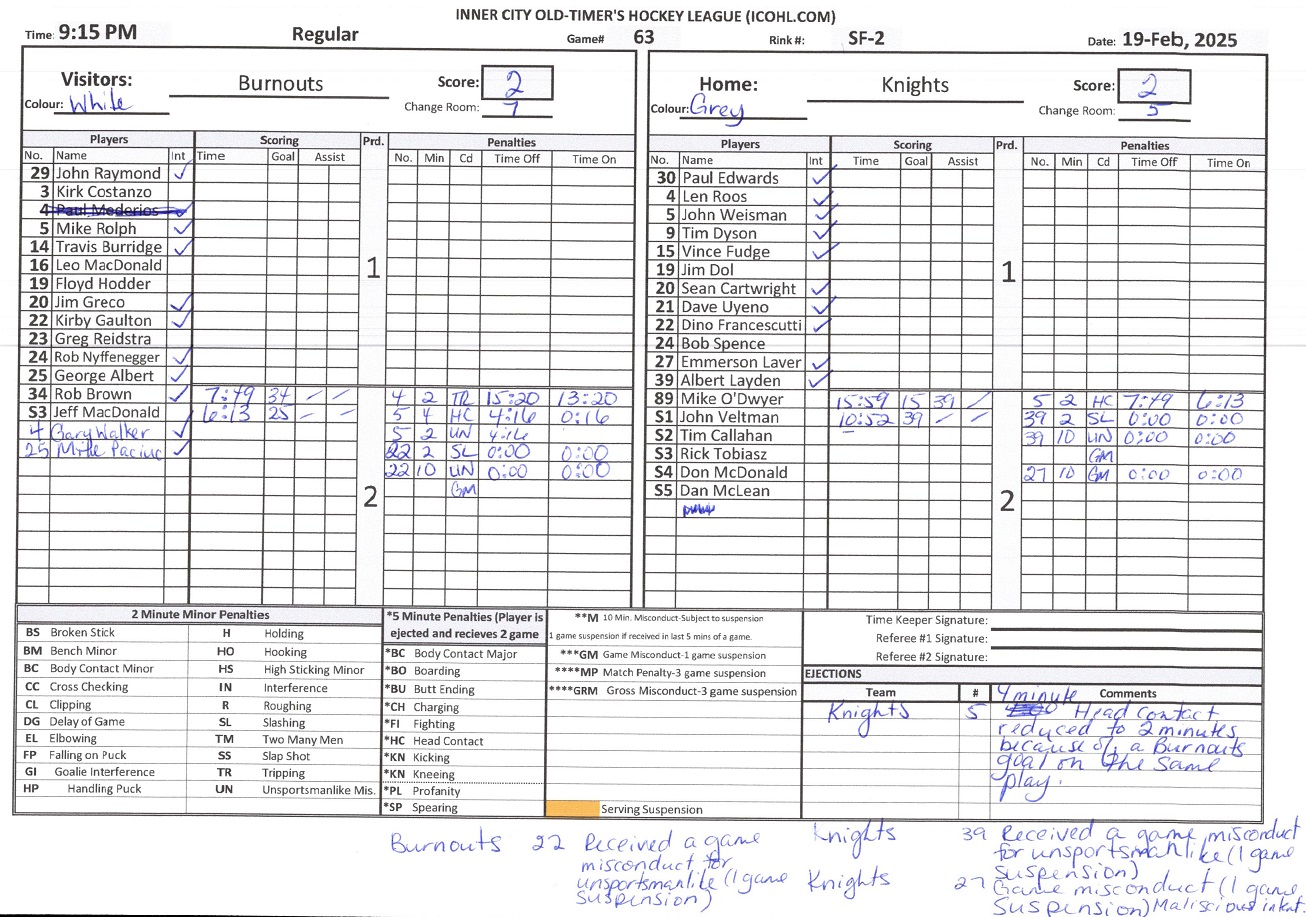 INNER CITY OLD-TIMER'S HOCKEY LEAGUE (ICOHL.COM)
Time: 9:15 PM Regular Game# 63 Rink #: SF-2 Date: 19-Feb, 2025
Visitors: Burnouts Score: 2
Colour: White Change Room: 7
Players Scoring Prd. Penalties
No. Name Int Time Goal Assist No. Min Cd Time Off Time On
29 John Raymond ✓
3 Kirk Costanzo
4 Paul Mederios ✓
5 Mike Rolph ✓
14 Travis Burridge ✓
16 Leo MacDonald
1
19 Floyd Hodder
20 Jim Greco ✓
22 Kirby Gaulton ✓
23 Greg Reidstra
24 Rob Nyffenegger ✓
25 George Albert ✓
34 Rob Brown ✓ 7:49 34 / / 4 2 TR 15:20 13:20
S3 Jeff MacDonald ✓ 6:13 25 / / 5 4 HC 4:16 0:16
4 Gary Walker ✓ 5 2 UN 4:16
25 Mike ✓ 22 2 SL 0:00 0:00
22 10 UN 0:00 0:00
GM
2
Home: Knights Score: 2
Colour: Grey Change Room: 5
Players Scoring Prd. Penalties
No. Name Int Time Goal Assist No. Min Cd Time Off Time On
30 Paul Edwards ✓
4 Len Roos ✓
5 John Weisman ✓
9 Tim Dyson ✓
15 Vince Fudge ✓
19 Jim Dol
1
20 Sean Cartwright ✓
21 Dave Uyeno ✓
22 Dino Francescutti ✓
24 Bob Spence
27 Emmerson Laver ✓
39 Albert Layden ✓
89 Mike O'Dwyer 15:59 15 39 / 5 2 HC 7:49 6:13
S1 John Veltman 10:52 39 / / 39 2 SL 0:00 0:00
S2 Tim Callahan 39 10 UN 0:00 0:00
S3 Rick Tobiasz GM
S4 Don McDonald 27 10 GM 0:00 0:00
S5 Dan McLean
2
2 Minute Minor Penalties
BS Broken Stick H Holding
BM Bench Minor HO Hooking
BC Body Contact Minor HS High Sticking Minor
CC Cross Checking IN Interference
CL Clipping R Roughing
DG Delay of Game SL Slashing
EL Elbowing TM Two Many Men
FP Falling on Puck SS Slap Shot
GI Goalie Interference TR Tripping
HP Handling Puck UN Unsportsmanlike Mis.
*5 Minute Penalties (Player is
ejected and recieves 2 game
*BC Body Contact Major
*BO Boarding
*BU Butt Ending
*CH Charging
*FI Fighting
*HC Head Contact
*KN Kicking
*KN Kneeing
*PL Profanity
*SP Spearing
**M 10 Min. Misconduct-Subject to suspension
1 game suspension if received in last 5 mins of a game.
***GM Game Misconduct-1 game suspension
****MP Match Penalty-3 game suspension
****GRM Gross Misconduct-3 game suspension
Serving Suspension
Time Keeper Signature:
Referee #1 Signature:
Referee #2 Signature:
EJECTIONS
Team # Comments
Knights 5 4 minute
Head contact
reduced to 2 minutes
because of a Burnouts
goal on the same
play.
Burnouts 22 Received a game
misconduct for
unsportsmanlike (1 game
suspension)
Knights 39 Received a game misconduct
for unsportsmanlike (1 game
suspension)
Knights 27 Game misconduct (1 game
suspension) Maliscious intent.